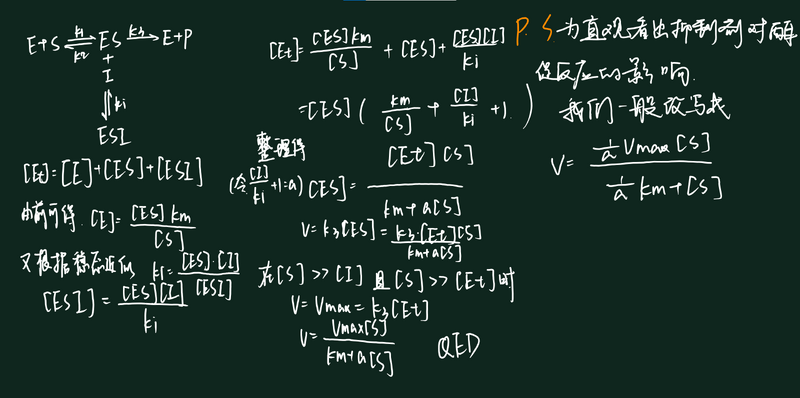 E+S ⇌ ES → E+P
k1 k2 k3
+
I
⇅ ki
ESI
[Et]=[E]+[ES]+[ESI]
由前可得 [E]=[ES]km/[S]
又根据稳态近似 ki=[ES]·[I]/[ESI]
[ESI]=[ES][I]/ki
[Et]=[ES]km/[S]+[ES]+[ES][I]/ki
=[ES](km/[S]+[I]/ki+1)
整理得
(令[I]/ki+1=a) [ES]=[Et][S]/km+a[S]
V=k3[ES]=k3·[Et][S]/km+a[S]
在[S]>>[I]且[S]>>[Et]时
V=Vmax=k3[Et]
V=Vmax[S]/km+a[S] QED
P.S.为直观看出抑制剂对酶
促反应的影响.
我们一般改写成
V=1/a Vmax[S]/1/a km+[S]